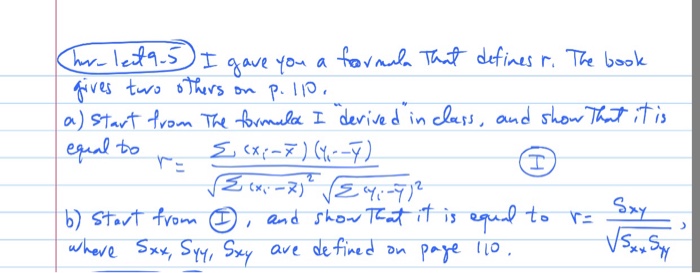 hw-lect9-5) I gave you a formula that defines r. The book
gives two others on p. 110.
a) Start from the formula I "derived" in class, and show that it is
equal to r = Σ(xᵢ-x̄)(yᵢ-ȳ) / √Σ(xᵢ-x̄)² √Σ(yᵢ-ȳ)² (I)
b) Start from (I), and show that it is equal to r = Sxy / √SxxSyy,
where Sxx, Syy, Sxy are defined on page 110.